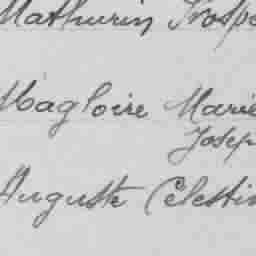 Mathurin Prospe
Magloire Marie
Josep
Auguste Célestin